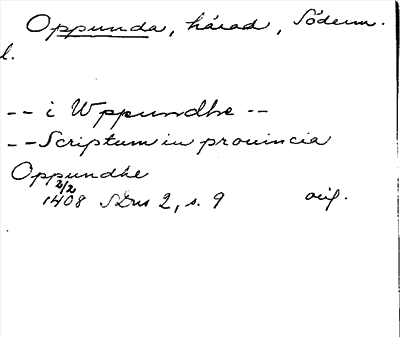 Oppunda, härad, Söderm.
l.
-- i Wppundhe --
-- Scriptum in prouincia
Oppundhe
2/2
1408 SDns 2, s. 9 orig.